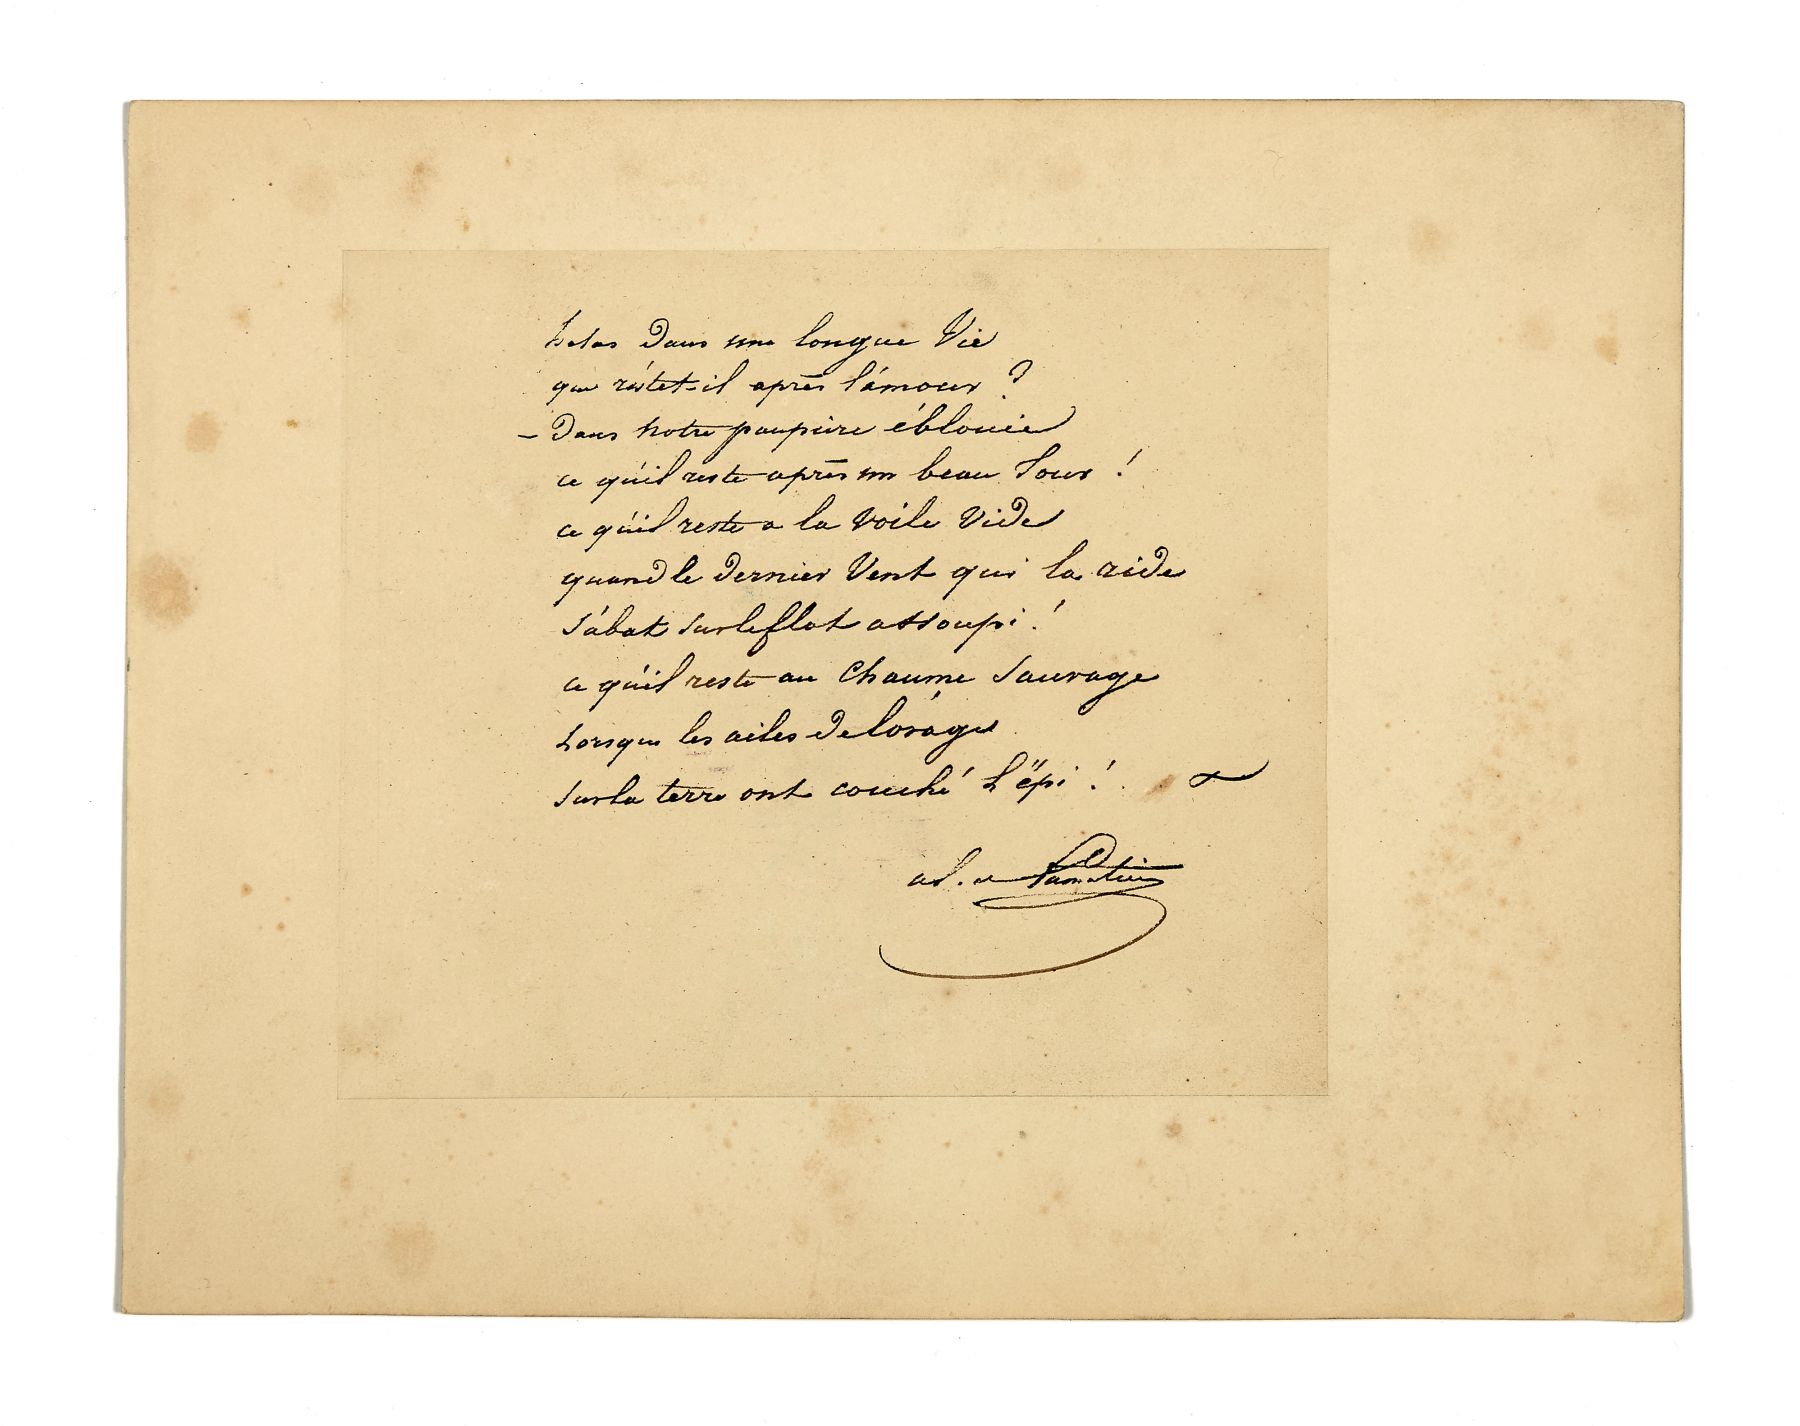 helas dans une longue Vie
que réstet-il après l'ámour ?
- dans notre paupiere éblouie
ce qu'il reste après un beau Jour !
ce qu'il reste a la Voile Vide
quand le dernier Vent qui la ride
s'ábat sur le flot assoupi !
ce qu'il reste au Chaume Sauvage
Lorsque les ailes de lorage
sur la terre ont couché L'épi !
al. de Lamartine